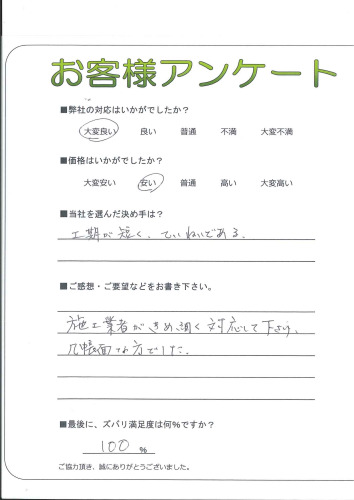 お客様アンケート
■弊社の対応はいかがでしたか?
大変良い 良い 普通 不満 大変不満
■価格はいかがでしたか?
大変安い 安い 普通 高い 大変高い
■当社を選んだ決め手は?
工期が短く、ていねいである。
■ご感想・ご要望などをお書き下さい。
施工業者がきめ細く対応して下さり、
几帳面な方でした。
■最後に、ズバリ満足度は何%ですか?
100 %
ご協力頂き、誠にありがとうございました。